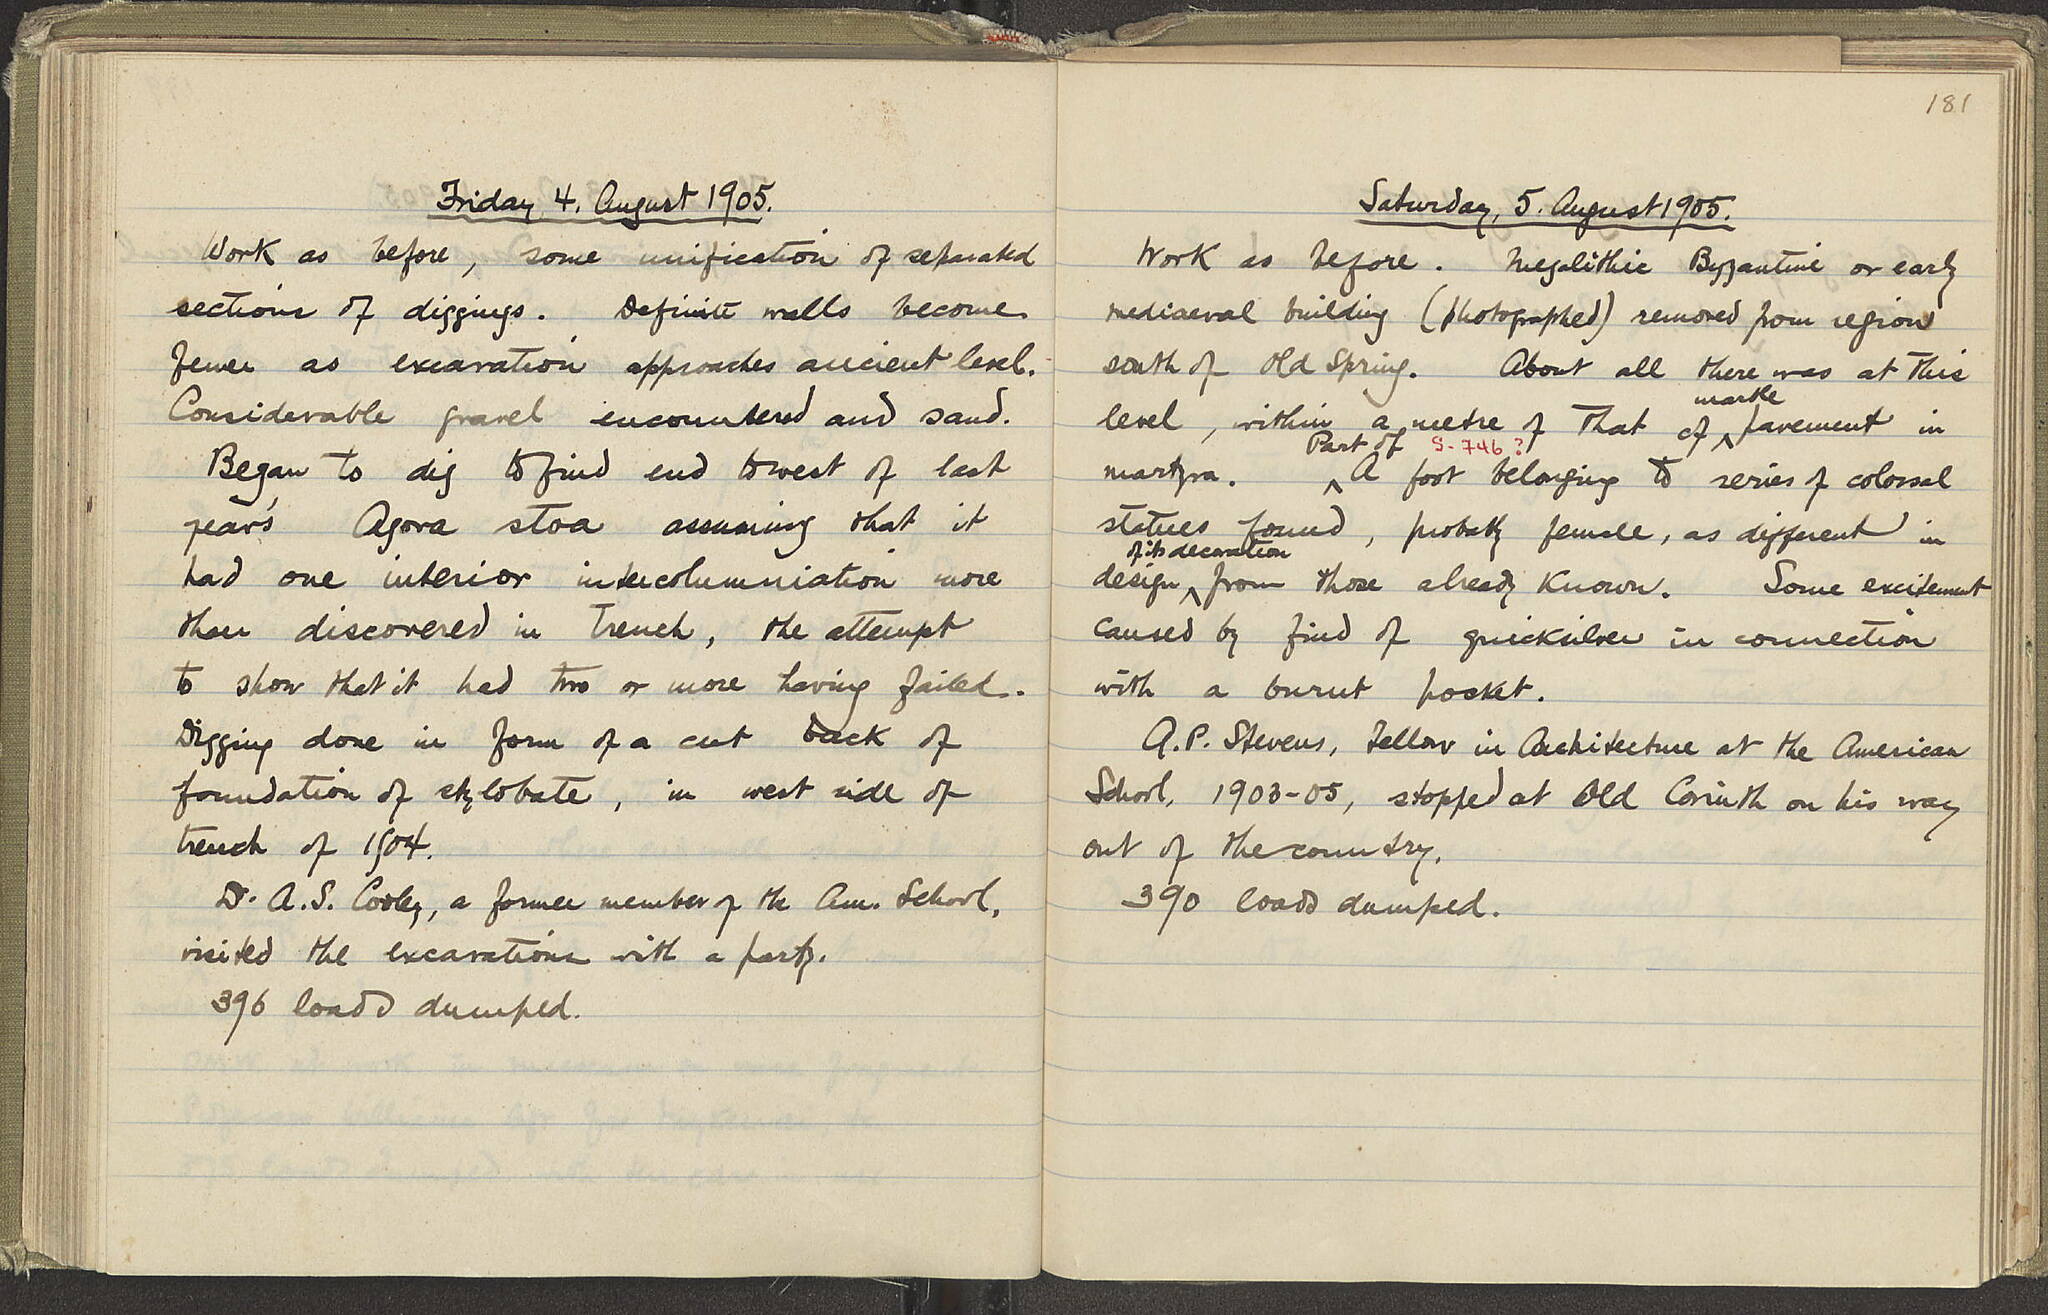 Friday, 4. August 1905.
Work as before, some unification of separated
sections of diggings. Definite walls become
fewer as excavation approaches ancient level.
Considerable gravel encountered and sand.
Began to dig to find end to west of last
year's Agora stoa assuming that it
had one interior intercolumniation more
than discovered in trench, the attempt
to show that it had two or more having failed.
Digging done in form of a cut back of
foundation of stylobate, in west side of
trench of 1904.
Dr. A.S. Cooley, a former member of the Am. School,
visited the excavations with a party.
396 loads dumped.
181
Saturday, 5. August 1905.
Work as before. Megalithic Byzantine or early
mediaeval building (photographed) removed from region
south of Old Spring. About all there was at this
marble
level, within a metre of that of ^ pavement in
Part of S-746?
martyra. ^ A foot belonging to series of colossal
statues found, probably female, as different in
of its decoration
design ^ from those already known. Some excitement
caused by find of quicksilver in connection
with a burnt pocket.
A.P. Stevens, Fellow in Architecture at the American
School, 1903-05, stopped at Old Corinth on his way
out of the country.
390 loads dumped.